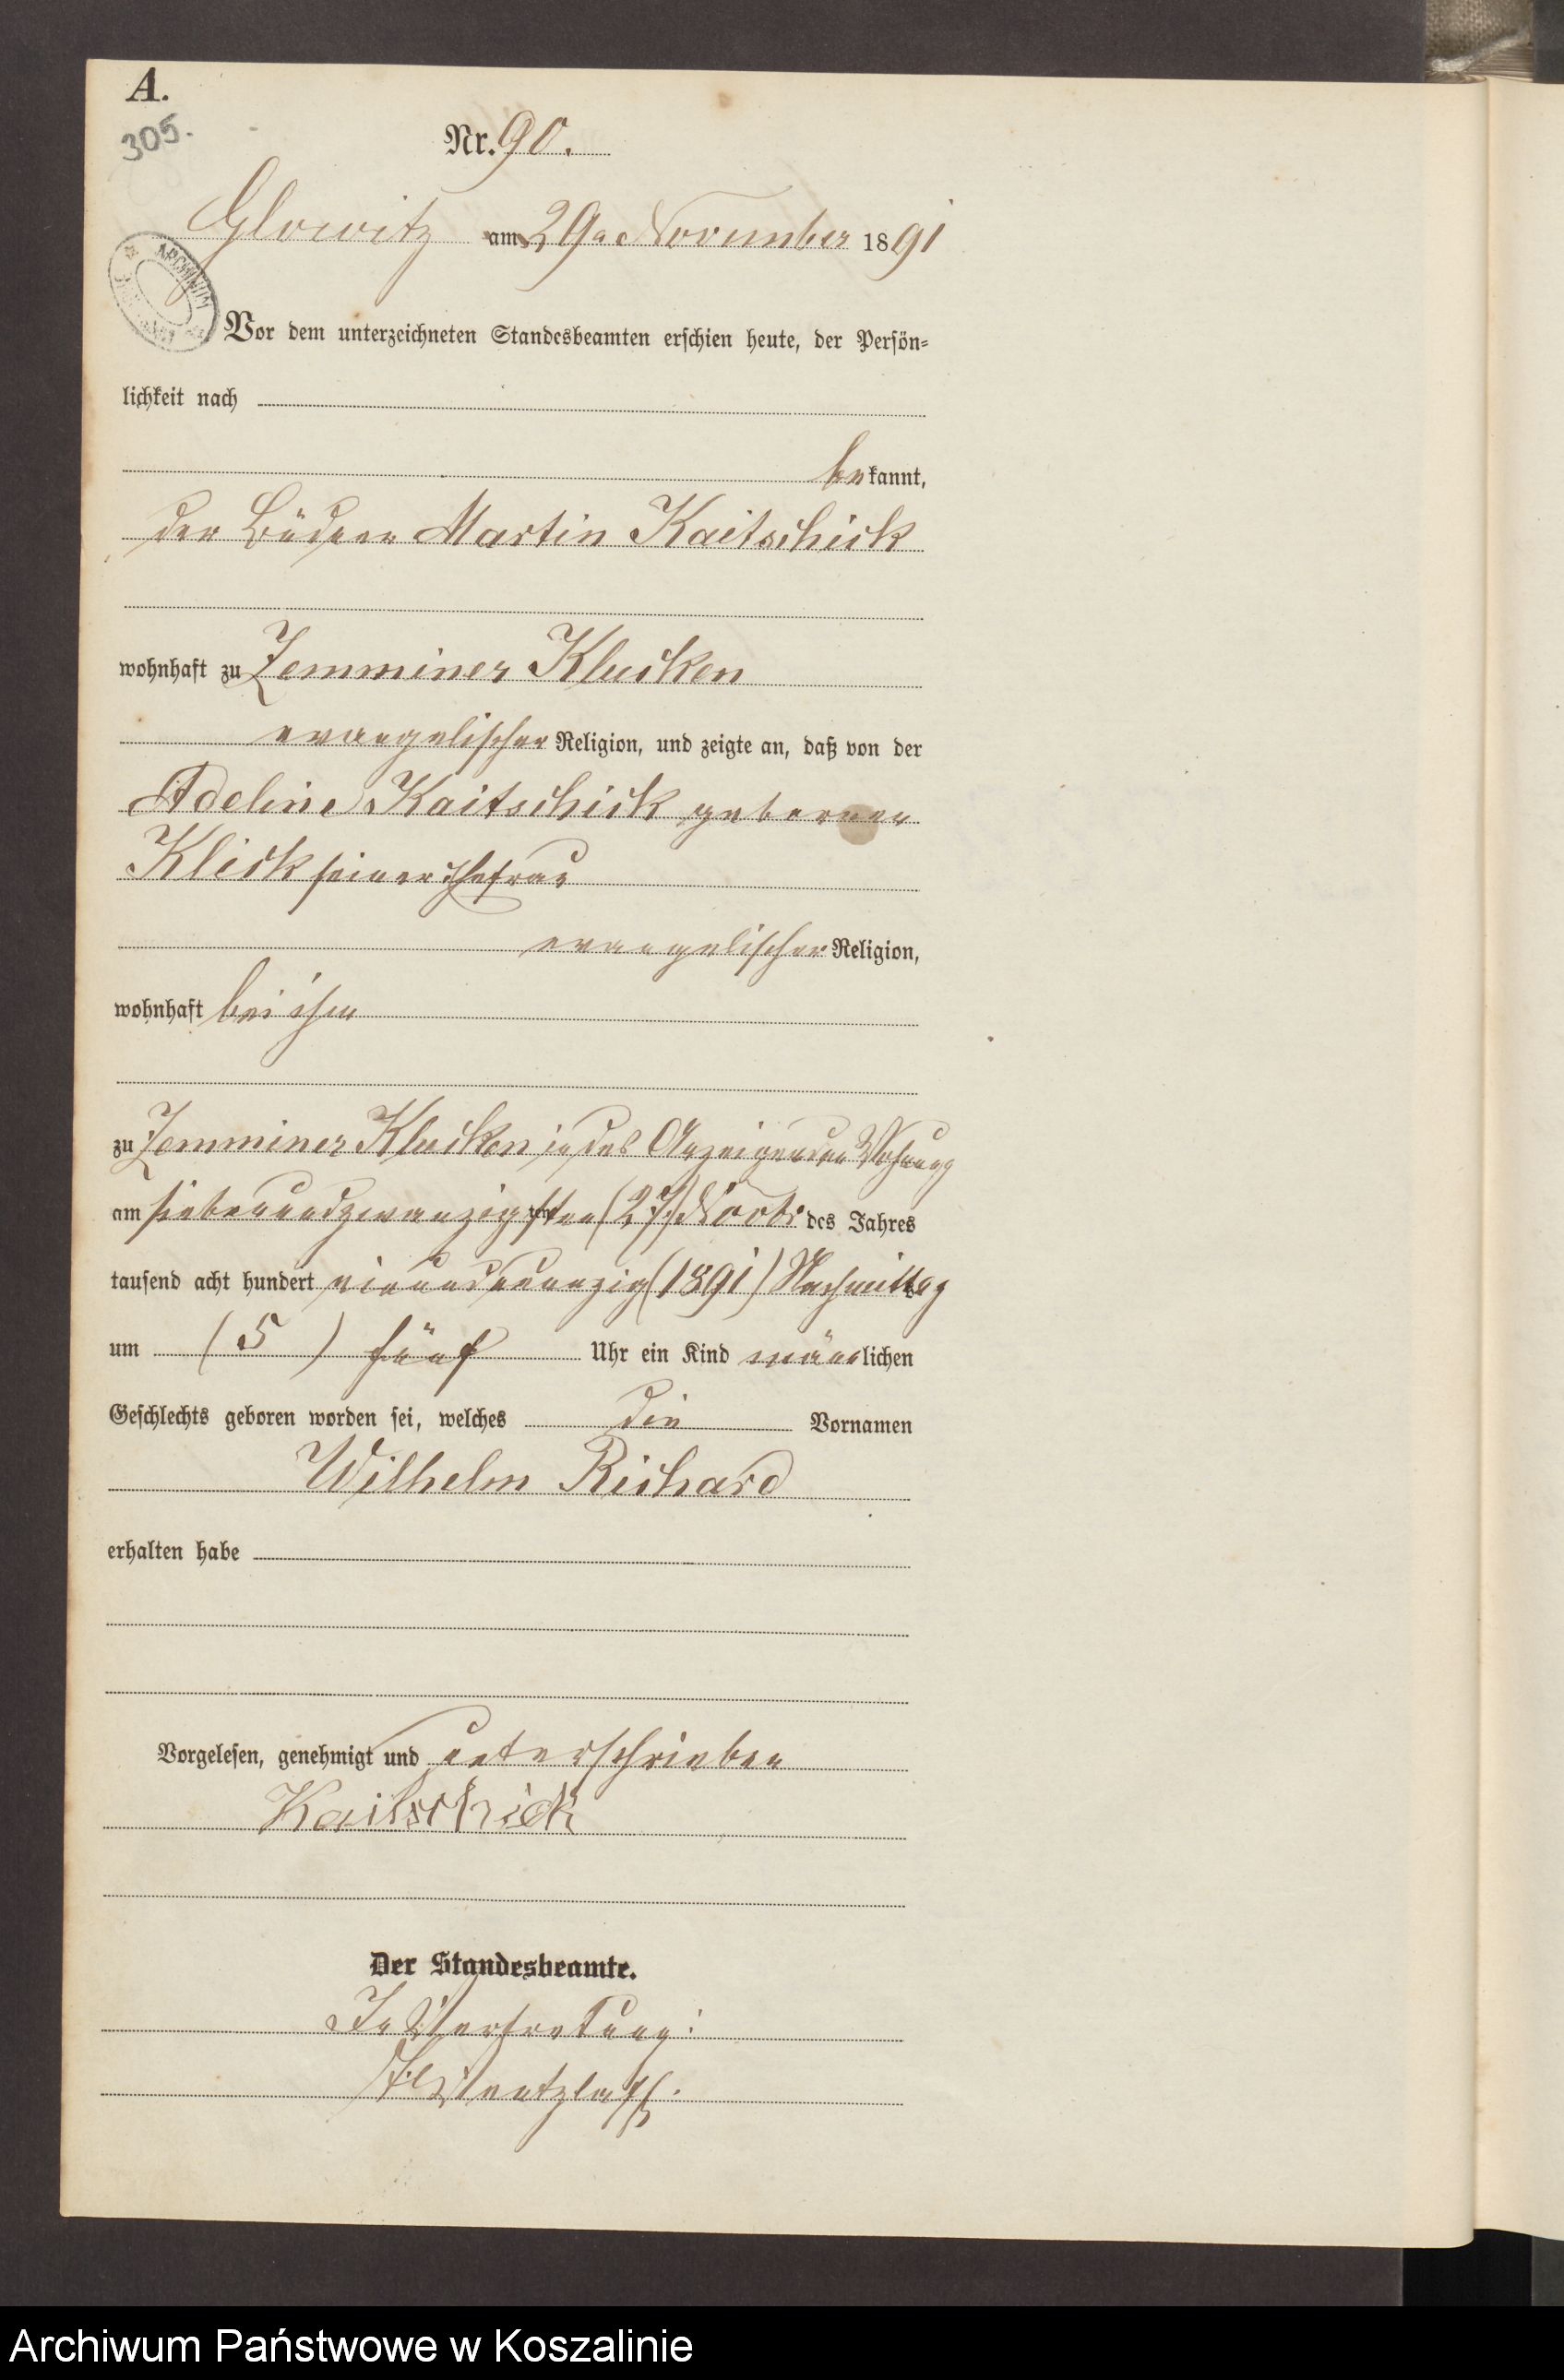 A.
305.
Nr. 90.
Glowitz am 29. November 1891
ARCHIWUM
Vor dem unterzeichneten Standesbeamten erschien heute, der Persön-
lichkeit nach
bekannt,
der Büdner Martin Kaitschick
wohnhaft zu Zemminer Klucken
evangelischer Religion, und zeigte an, daß von der
Adeline Kaitschick geborenen
Klick seiner Ehefrau
evangelischer Religion,
wohnhaft bei ihm
zu Zemminer Klucken in des Anzeigenden Wohnung
am siebenundzwanzigsten (27) Novbr des Jahres
tausend acht hundert einundneunzig (1891) Nachmittag
um (5) fünf Uhr ein Kind männlichen
Geschlechts geboren worden sei, welches die Vornamen
Wilhelm Richard
erhalten habe
Vorgelesen, genehmigt und unterschrieben
Kaitschick
Der Standesbeamte.
In Vertretung:
Ventzlaff.
Archiwum Państwowe w Koszalinie